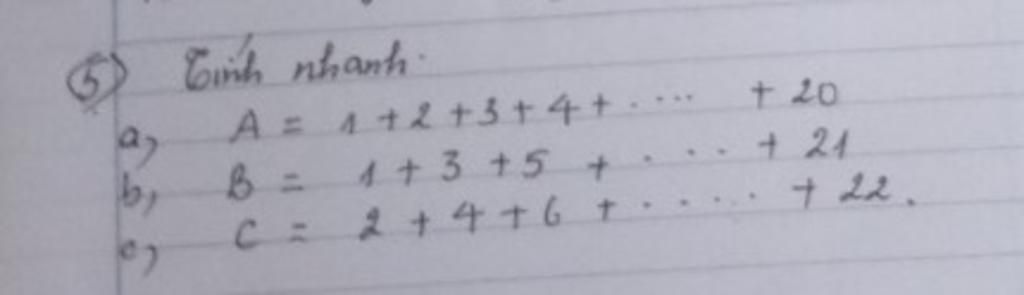 ⑤ Tính nhanh.
a, A = 1 + 2 + 3 + 4 + ..... + 20
b, B = 1 + 3 + 5 + .... + 21
c, C = 2 + 4 + 6 + ..... + 22.